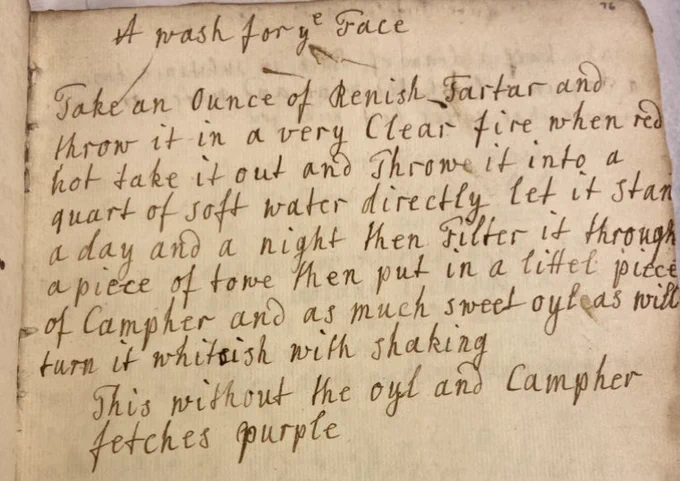 76
A wash for yᵉ Face
Take an Ounce of Renish Tartar and
throw it in a very Clear fire when red
hot take it out and Throwe it into a
quart of soft water directly let it stan
a day and a night then Filter it through
a piece of towe then put in a littel piece
of Campher and as much sweet oyl as will
turn it whiteish with shaking
This without the oyl and Campher
fetches purple